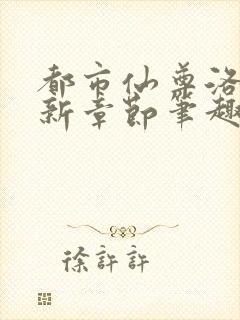 都市仙尊洛
新章节笔趣
徐許許